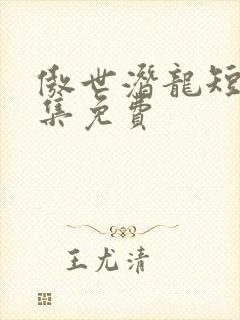 傲世潛龍短
集免費
王尤清